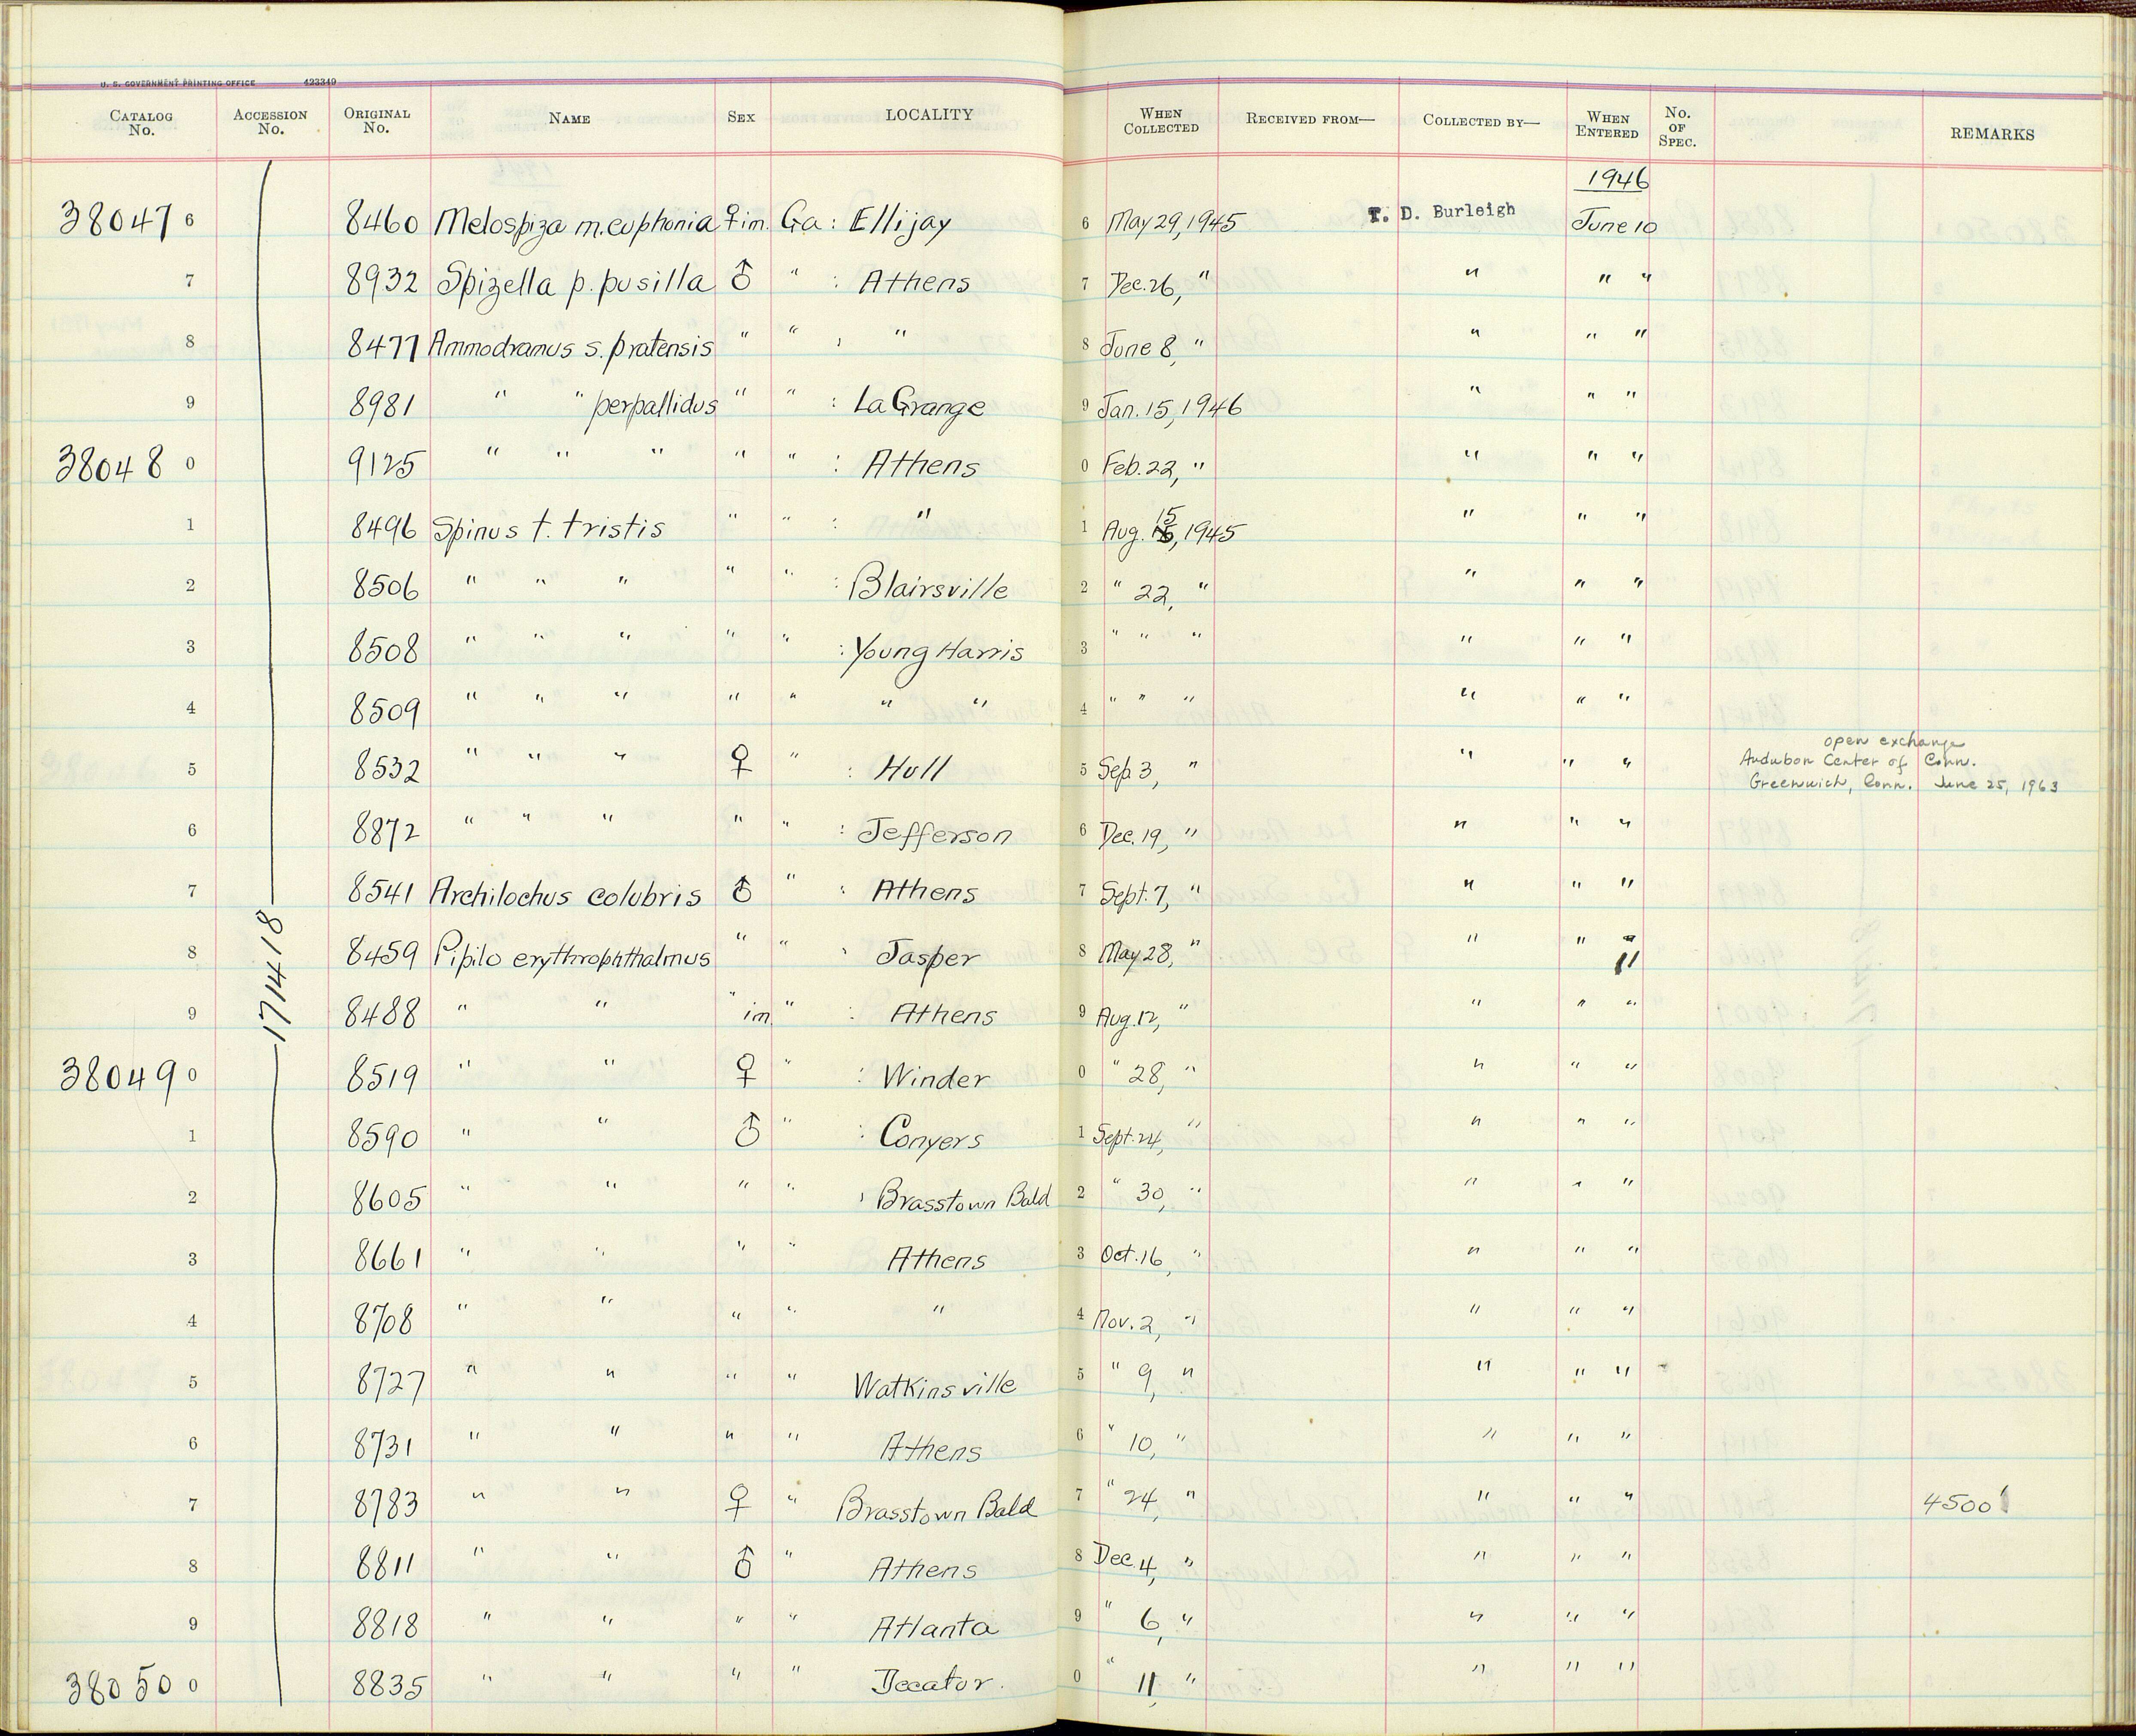 U. S. GOVERNMENT PRINTING OFFICE 423349
CATALOG No. ACCESSION No. ORIGINAL No. NAME SEX LOCALITY WHEN COLLECTED RECEIVED FROM— COLLECTED BY— WHEN ENTERED No. OF SPEC. REMARKS
1946
38047 6 8460 Melospiza m. euphonia ♀ im. Ga : Ellijay 6 May 29, 1945 T. D. Burleigh June 10
7 8932 Spizella p. pusilla ♂ " : Athens 7 Dec. 26, " " " "
8 8477 Ammodramus s. pratensis " " : " 8 June 8, " " " "
9 8981 " " perpallidus " " : LaGrange 9 Jan. 15, 1946 " " "
38048 0 9125 " " " " " : Athens 0 Feb. 22, " " " "
1 8496 Spinus t. tristis " " : " 1 Aug. 15, 1945 " " "
2 8506 " " " " " : Blairsville 2 " 22, " " " "
3 8508 " " " " " : Young Harris 3 " " " " " "
4 8509 " " " " " " " 4 " " " " " "
5 8532 " " " ♀ " : Hull 5 Sep. 3, " " " " open exchange Audubon Center of Conn. Greenwich, Conn. June 25, 1963
6 8872 " " " " " : Jefferson 6 Dec. 19, " " " "
7 8541 Archilochus colubris ♂ " : Athens 7 Sept. 7, " " " "
8 8459 Pipilo erythrophthalmus " " : Jasper 8 May 28, " " " "
171418
9 8488 " " " im. " : Athens 9 Aug. 12, " " " "
38049 0 8519 " " ♀ " : Winder 0 " 28, " " " "
1 8590 " " ♂ " : Conyers 1 Sept. 24, " " " "
2 8605 " " " " : Brasstown Bald 2 " 30, " " " "
3 8661 " " " " Athens 3 Oct. 16, " " " "
4 8708 " " " " " 4 Nov. 2, " " " "
5 8727 " " " " Watkinsville 5 " 9, " " " "
6 8731 " " " " Athens 6 " 10, " " " "
7 8783 " " ♀ " Brasstown Bald 7 " 24, " " " " 4500'
8 8811 " " ♂ " Athens 8 Dec. 4, " " " "
9 8818 " " " " Atlanta 9 " 6, " " " "
38050 0 8835 " " " " Decatur. 0 " 11, " " " "